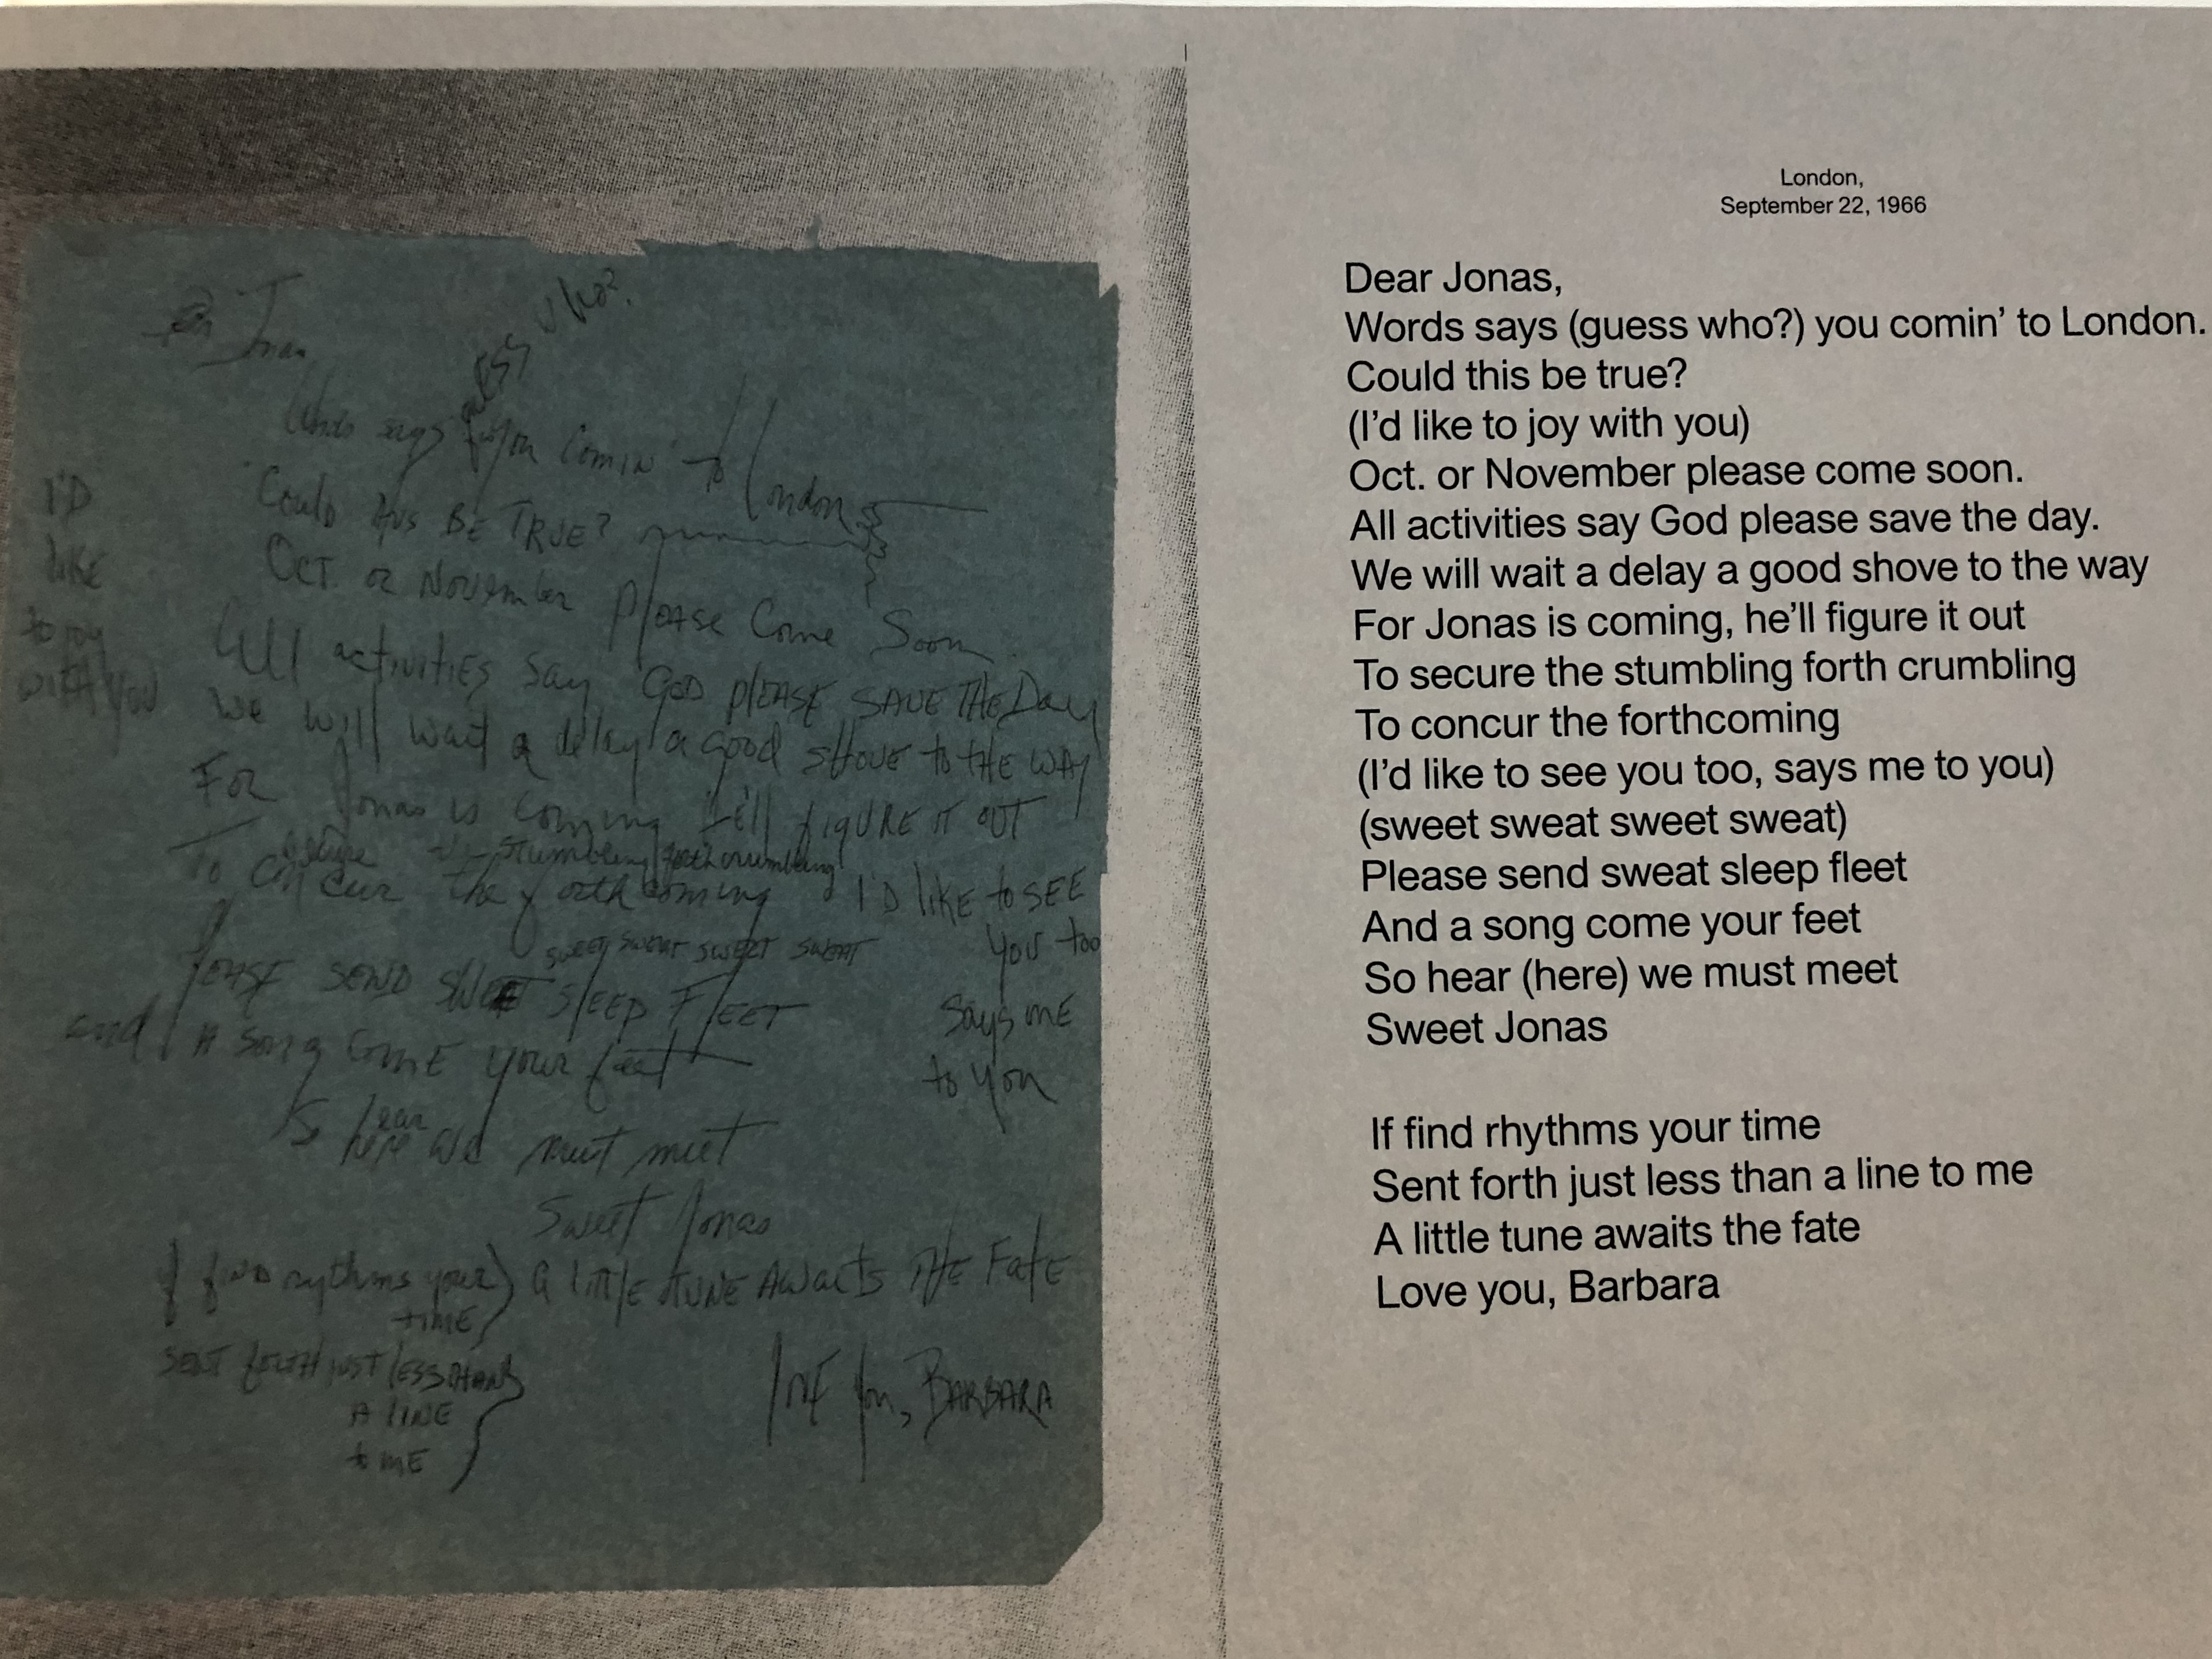 Dear Jonas
guess who?
Words says you comin' to London
Could this BE TRUE?
I'D
like
to joy
with you
Oct. or November Please Come Soon.
All activities say GOD PLEASE SAVE THE Day
we will wait a delay a good shove to the way
For Jonas is coming he'll figure it out
To secure the stumbling forth crumbling
To concur the forthcoming
I'D like to SEE
you too
says ME
to you
sweet sweat sweet sweat
Please SEND sleep FLEET
and A song come your feet
So hear
here we must meet
Sweet Jonas
If find rythms your
time
sent forth just less than
A LINE
to ME
A little tune awaits the Fate
Love you, BARBARA
London,
September 22, 1966
Dear Jonas,
Words says (guess who?) you comin’ to London.
Could this be true?
(I’d like to joy with you)
Oct. or November please come soon.
All activities say God please save the day.
We will wait a delay a good shove to the way
For Jonas is coming, he’ll figure it out
To secure the stumbling forth crumbling
To concur the forthcoming
(I’d like to see you too, says me to you)
(sweet sweat sweet sweat)
Please send sweat sleep fleet
And a song come your feet
So hear (here) we must meet
Sweet Jonas
If find rhythms your time
Sent forth just less than a line to me
A little tune awaits the fate
Love you, Barbara